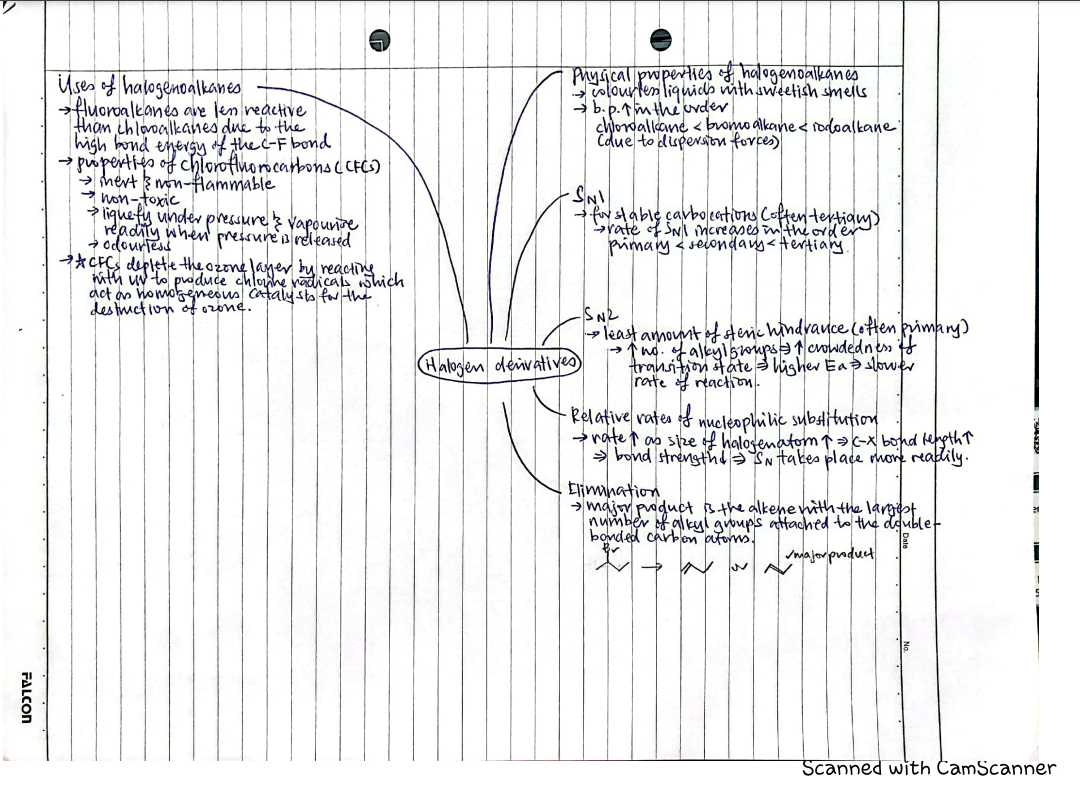 Uses of halogenoalkanes
→ fluoroalkanes are less reactive
than chloroalkanes due to the
high bond energy of the C-F bond
→ properties of chlorofluorocarbons (CFCs)
→ inert & non-flammable
→ non-toxic
→ liquefy under pressure & vapourise
readily when pressure is released
→ odourless
→ ☆CFCs deplete the ozone layer by reacting
with UV to produce chlorine radicals which
act as homogeneous catalysts for the
destruction of ozone.
Halogen derivatives
Physical properties of halogenoalkanes
→ colourless liquids with sweetish smells
→ b.p.↑ in the order
chloroalkane < bromoalkane < iodoalkane
(due to dispersion forces)
SN1
→ for stable carbocations (often tertiary)
→ rate of SN1 increases in the order
primary < secondary < tertiary
SN2
→ least amount of steric hindrance (often primary)
→ ↑ no. of alkyl groups ⇒ ↑ crowdedness of
transition state ⇒ higher Ea ⇒ slower
rate of reaction.
Relative rates of nucleophilic substitution
→ rate ↑ as size of halogen atom ↑ ⇒ C-X bond length ↑
⇒ bond strength↓ ⇒ SN takes place more readily.
Elimination
→ major product is the alkene with the largest
number of alkyl groups attached to the double-
bonded carbon atoms.
Br
→ or
major product
Date
No.
FALCON
Scanned with CamScanner